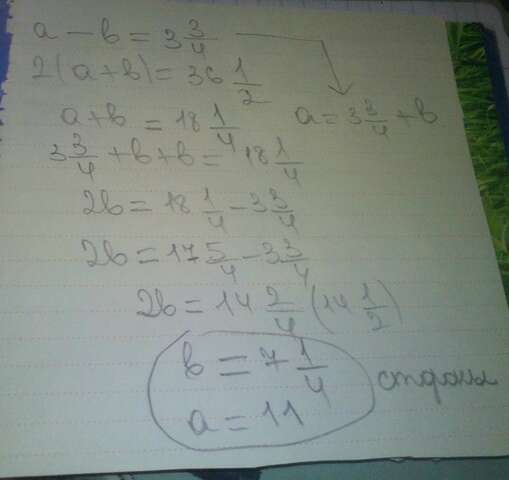 a - b = 3 3/4
2(a + b) = 36 1/2
a + b = 18 1/4
a = 3 3/4 + b
3 3/4 + b + b = 18 1/4
2b = 18 1/4 - 3 3/4
2b = 17 5/4 - 3 3/4
2b = 14 2/4 (14 1/2)
b = 7 1/4
a = 11
стороны